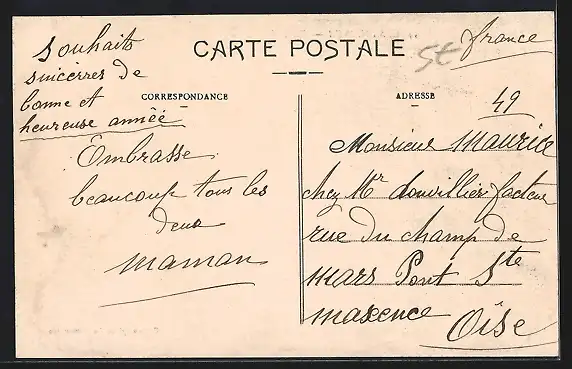 CARTE POSTALE
France
CORRESPONDANCE
ADRESSE
Souhaits
sincerres de
bonne et
heureuse année
Embrasse
beaucoup tous les
deux
maman
49
Monsieur Maurice
chez Mr donvillier facteur
rue du champ de
mars Pont Ste
maxence
Oise